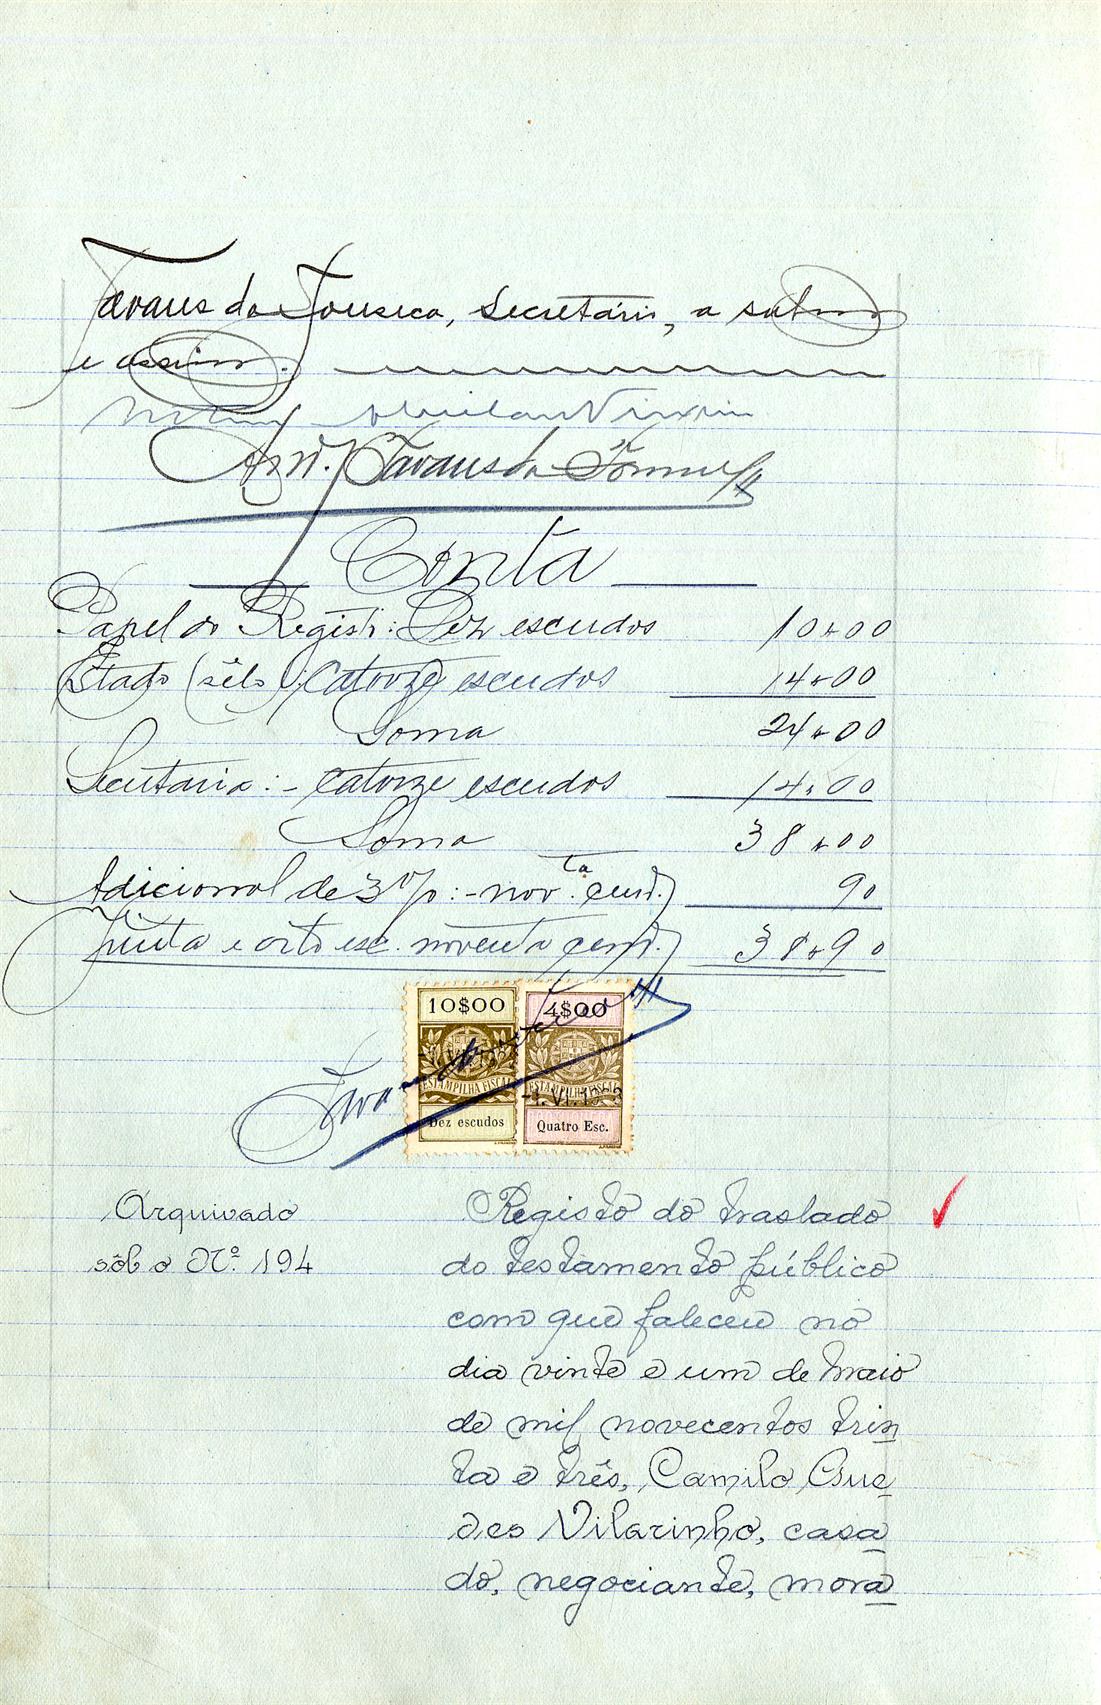 Tavares da Fonseca, Secretário, a sub
e assino.
Tavares da Fonseca
Conta
Papel do Registo: Dez escudos 10$00
Estado (sêlo): Catorze escudos 14$00
Soma 24$00
Secretaria:- Catorze escudos 14$00
Soma 38$00
Adicional de 3%:- nov.ta cent. 90
Trinta e oito esc. noventa cent. 38$90
10$00 4$00
ESTAMPILHA FISCAL ESTAMPILHA FISCAL
-1.VI.1933
Dez escudos Quatro Esc.
Arquivado
sôb o Nº. 194
Registo do traslado
do testamento público
com que faleceu no
dia vinte e um de maio
de mil novecentos trin
ta e três, Camilo Gue
des Vilarinho, casa
do, negociante, mora